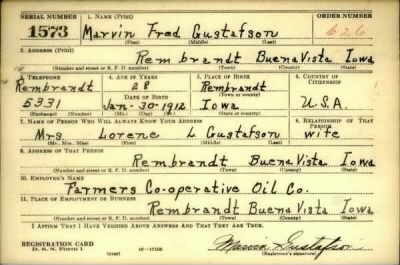 SERIAL NUMBER 1. NAME (Print) ORDER NUMBER
1573 Marvin Fred Gustafson 626
(First) (Middle) (Last)
2. ADDRESS (Print)
Rembrandt Buena Vista Iowa
(Number and street or R. F. D. number) (Town) (County) (State)
3. TELEPHONE 4. AGE IN YEARS 5. PLACE OF BIRTH 6. COUNTRY OF CITIZENSHIP
Rembrandt 28 Rembrandt
DATE OF BIRTH (Town or county)
5331 Jan-30-1912 Iowa U.S.A.
(Exchange) (Number) (Mo.) (Day) (Yr.) (State or country)
7. NAME OF PERSON WHO WILL ALWAYS KNOW YOUR ADDRESS 8. RELATIONSHIP OF THAT PERSON
Mrs Lorene L Gustafson wife
(Mr., Mrs., Miss) (First) (Middle) (Last)
9. ADDRESS OF THAT PERSON
Rembrandt Buena Vista Iowa
(Number and street or R. F. D. number) (Town) (County) (State)
10. EMPLOYER'S NAME
Farmers Co-operative Oil Co.
11. PLACE OF EMPLOYMENT OR BUSINESS
Rembrandt Buena Vista Iowa
(Number and street or R. F. D. number) (Town) (County) (State)
I AFFIRM THAT I HAVE VERIFIED ABOVE ANSWERS AND THAT THEY ARE TRUE.
REGISTRATION CARD Marvin Gustafson
D. S. S. Form 1 (over) (Registrant's signature)